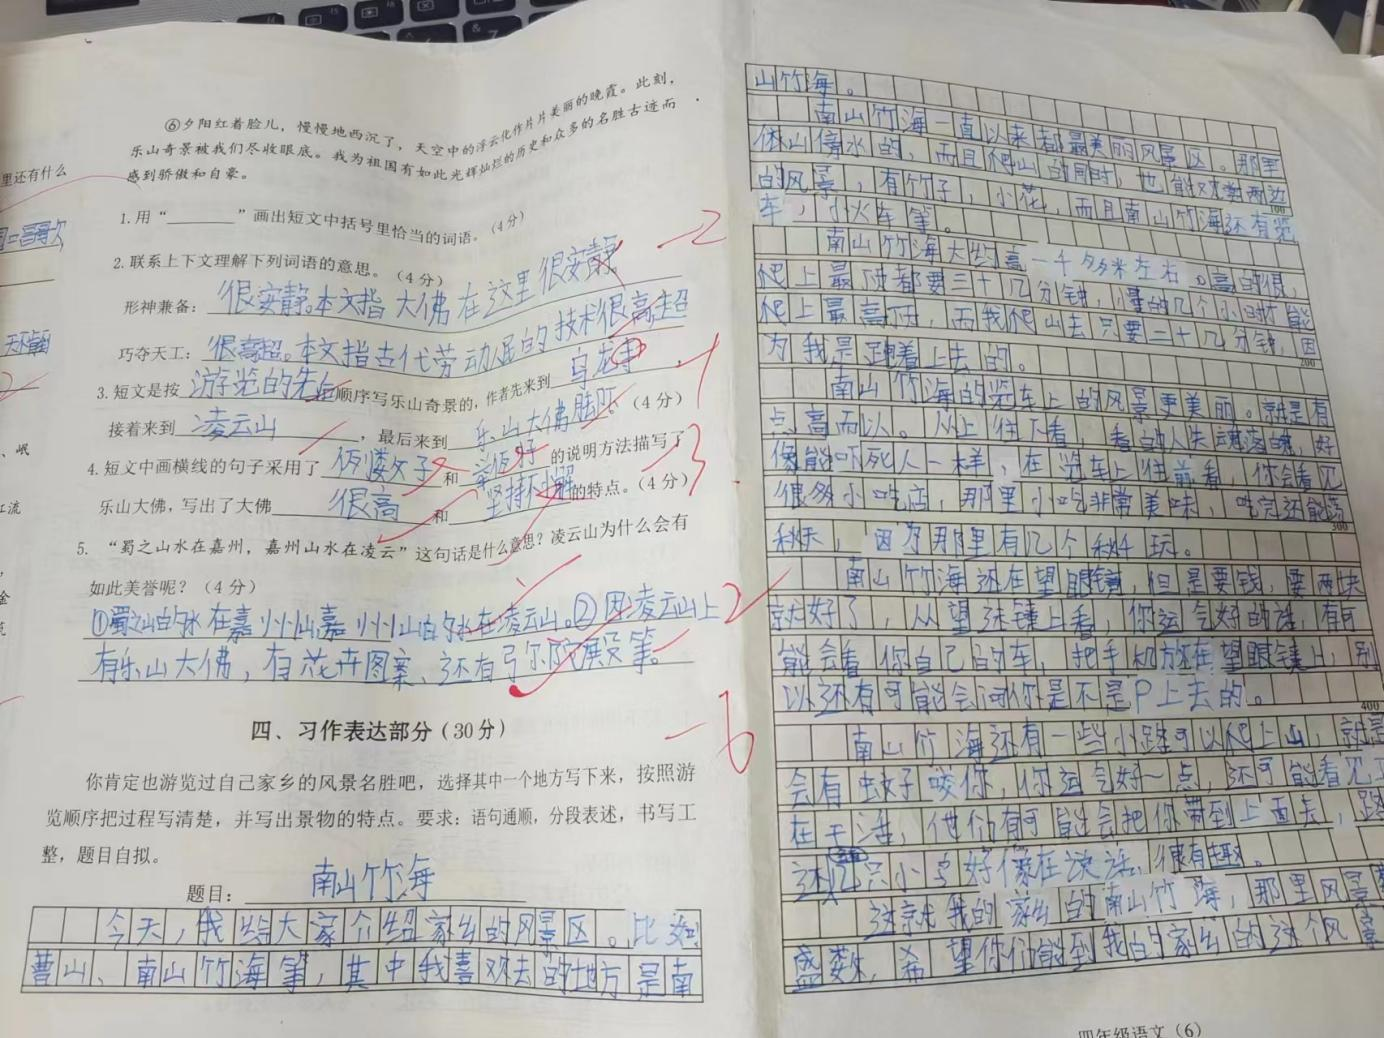 里还有什么
岷
江流
金
⑥夕阳红着脸儿，慢慢地西沉了，天空中的浮云化作片片美丽的晚霞。此刻，
乐山奇景被我们尽收眼底。我为祖国有如此光辉灿烂的历史和众多的名胜古迹而
感到骄傲和自豪。
1.用“________”画出短文中括号里恰当的词语。(4分)
2.联系上下文理解下列词语的意思。(4分) -2
形神兼备：很安静。本文指大佛在这里很安静。
巧夺天工：很高超。本文指古代劳动民的技术很高超
3.短文是按游览的先后顺序写乐山奇景的，作者先来到乌龙寺，
接着来到凌云山，最后来到乐山大佛脚下。(4分)
4.短文中画横线的句子采用了 和 的说明方法描写了
乐山大佛，写出了大佛很高和坚持不懈的特点。(4分)
5.“蜀之山水在嘉州，嘉州山水在凌云”这句话是什么意思？凌云山为什么会有
如此美誉呢？(4分)
①蜀山的水在嘉州山嘉州山的水在凌云山。②因凌云山上
有乐山大佛，有花卉图案、还有 等。
-6
四、习作表达部分(30分)
你肯定也游览过自己家乡的风景名胜吧，选择其中一个地方写下来，按照游
览顺序把过程写清楚，并写出景物的特点。要求：语句通顺，分段表述，书写工
整，题目自拟。
题目：南山竹海
今天，我给大家介绍家乡的风景区。比如
曹山、南山竹海等，其中我喜欢去的地方是南
山竹海。
南山竹海一直以来都最美丽风景区。那里
依山傍水的，而且爬山的同时，也能欣赏两边
的风景，有竹子，小花，而且南山竹海还有览
100
车，小火车等。
南山竹海大约高一千多米左右。高的很，
爬上最顶都要三十几分钟，慢的几个小时才能
爬上最高顶，而我爬山去只要二十几分钟，因
200
为我是跑着上去的。
南山竹海的览车上的风景更美丽。就是有
点高而以。从上往下看，看的人失魂落魄，好
像能吓死人一样，在览车上往前看，你会看见
很多小吃店，那里小吃非常美味，吃完还能荡
300
秋天，因为那里有几个秋千玩。
南山竹海还在望眼镜，但是要钱，要两块
就好了，从望远镜上看，你运气好的话，有可
能会看你自己的车，把手机放在望眼镜上，别
以还有可能会问你是不是P上去的。
400
南山竹海还有一些小路可以爬上山，就是
会有蚊子咬你，你运气好一点，还可能看见工
在干活，他们有可能会把你带到上面去，路
还 只小鸟好像在谈话，很有趣。
这就我的家乡的南山竹海，那里风景
盛数，希望你们能到我的家乡的这个风景
四年级语文(6)